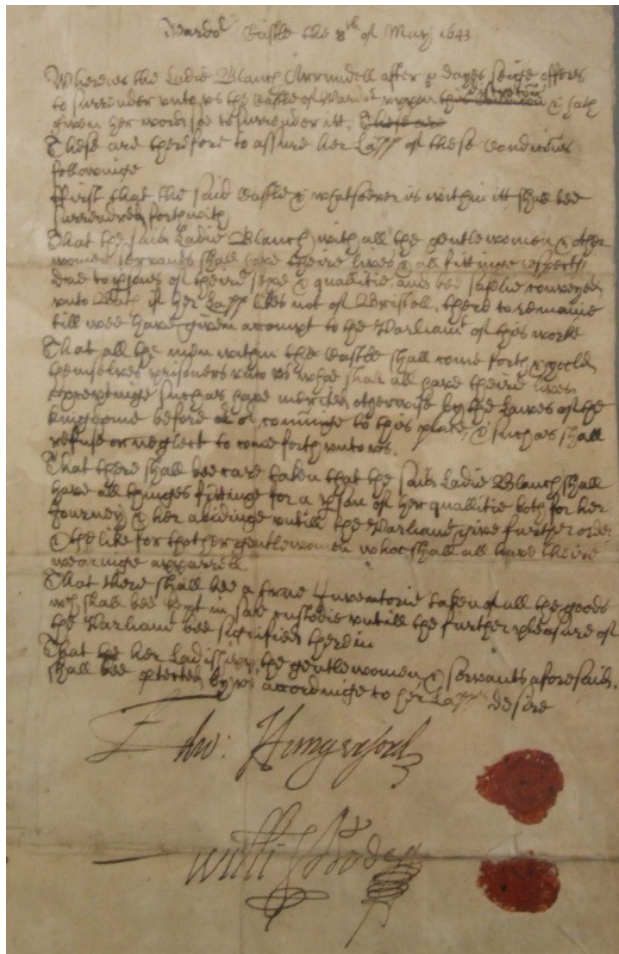 Wardor Castle the 8th of May 1643
Whereas the Ladie Blanch Arrundell after 7 dayes seige offers
to surrender unto us the Castle of Wardor uppon & hath
given her word soe to surrender itt. These are
These are therefore to assure her Lapp of these Conditions
followinge
ffirst that the said Castle & whatsoever is within itt shall bee
surrendred forthwith
That the said Ladie Blanch with all the gentlewomen & other
women servants shall have theire lives & all fittinge respects
due to psons of theire sexe & qualitie, and bee safelie conveyed
unto Bath if her Lapp likes not of Bristoll, there to remaine
till wee have given account to the Parliamt of this worke
That all the men within the Castle shall come forth & yeeld
themselves prisoners unto us whoe shall all have theire lives
exceptinge such as have merited otherwise by the Lawes of the
kingdome before comminge to this place, & such as shall
refuse or neglect to come forth unto us.
That there shall bee care taken that the said Ladie Blanch shall
have all thinges fittinge for a pson of her qualitie both for her
Journey & her abidinge untill the Parliamt give further order
& the like for thother gentlewomen who shall all have theire
wearinge apparrell
That there shall bee a true Inventorie taken of all the goods
wch shall bee kept in safe custodie untill the further pleasure of
the Parliamt bee signified therein
That the her Ladisship, the gentlewomen & servants aforesaid.
shall bee ptected by us accordinge to her Lapps desire
Edw: Hungerford